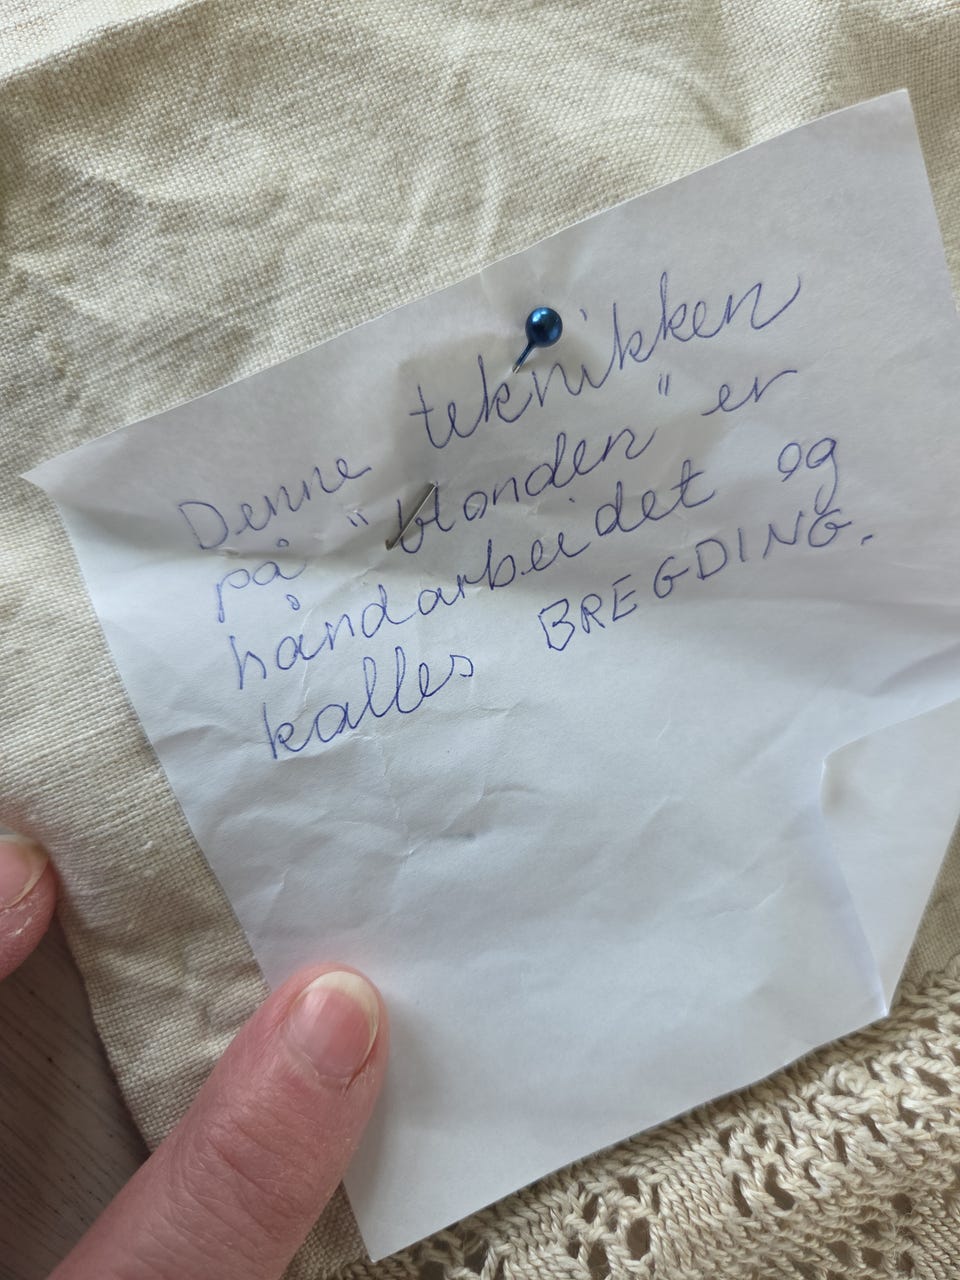 Denne teknikken
på "blonden" er
håndarbeidet og
kalles BREGDING.